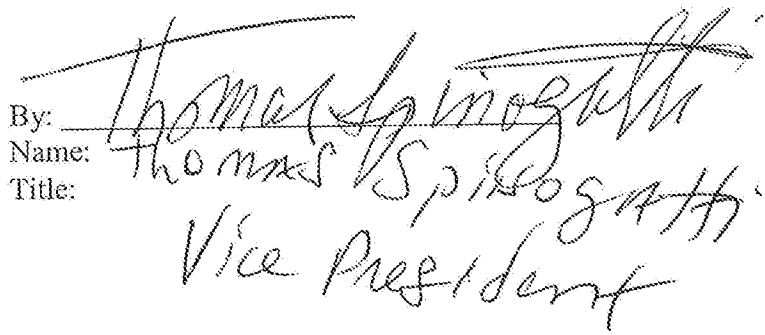 By: Thomas Spinogatti
Name: Thomas Spinogatti
Title: Vice President